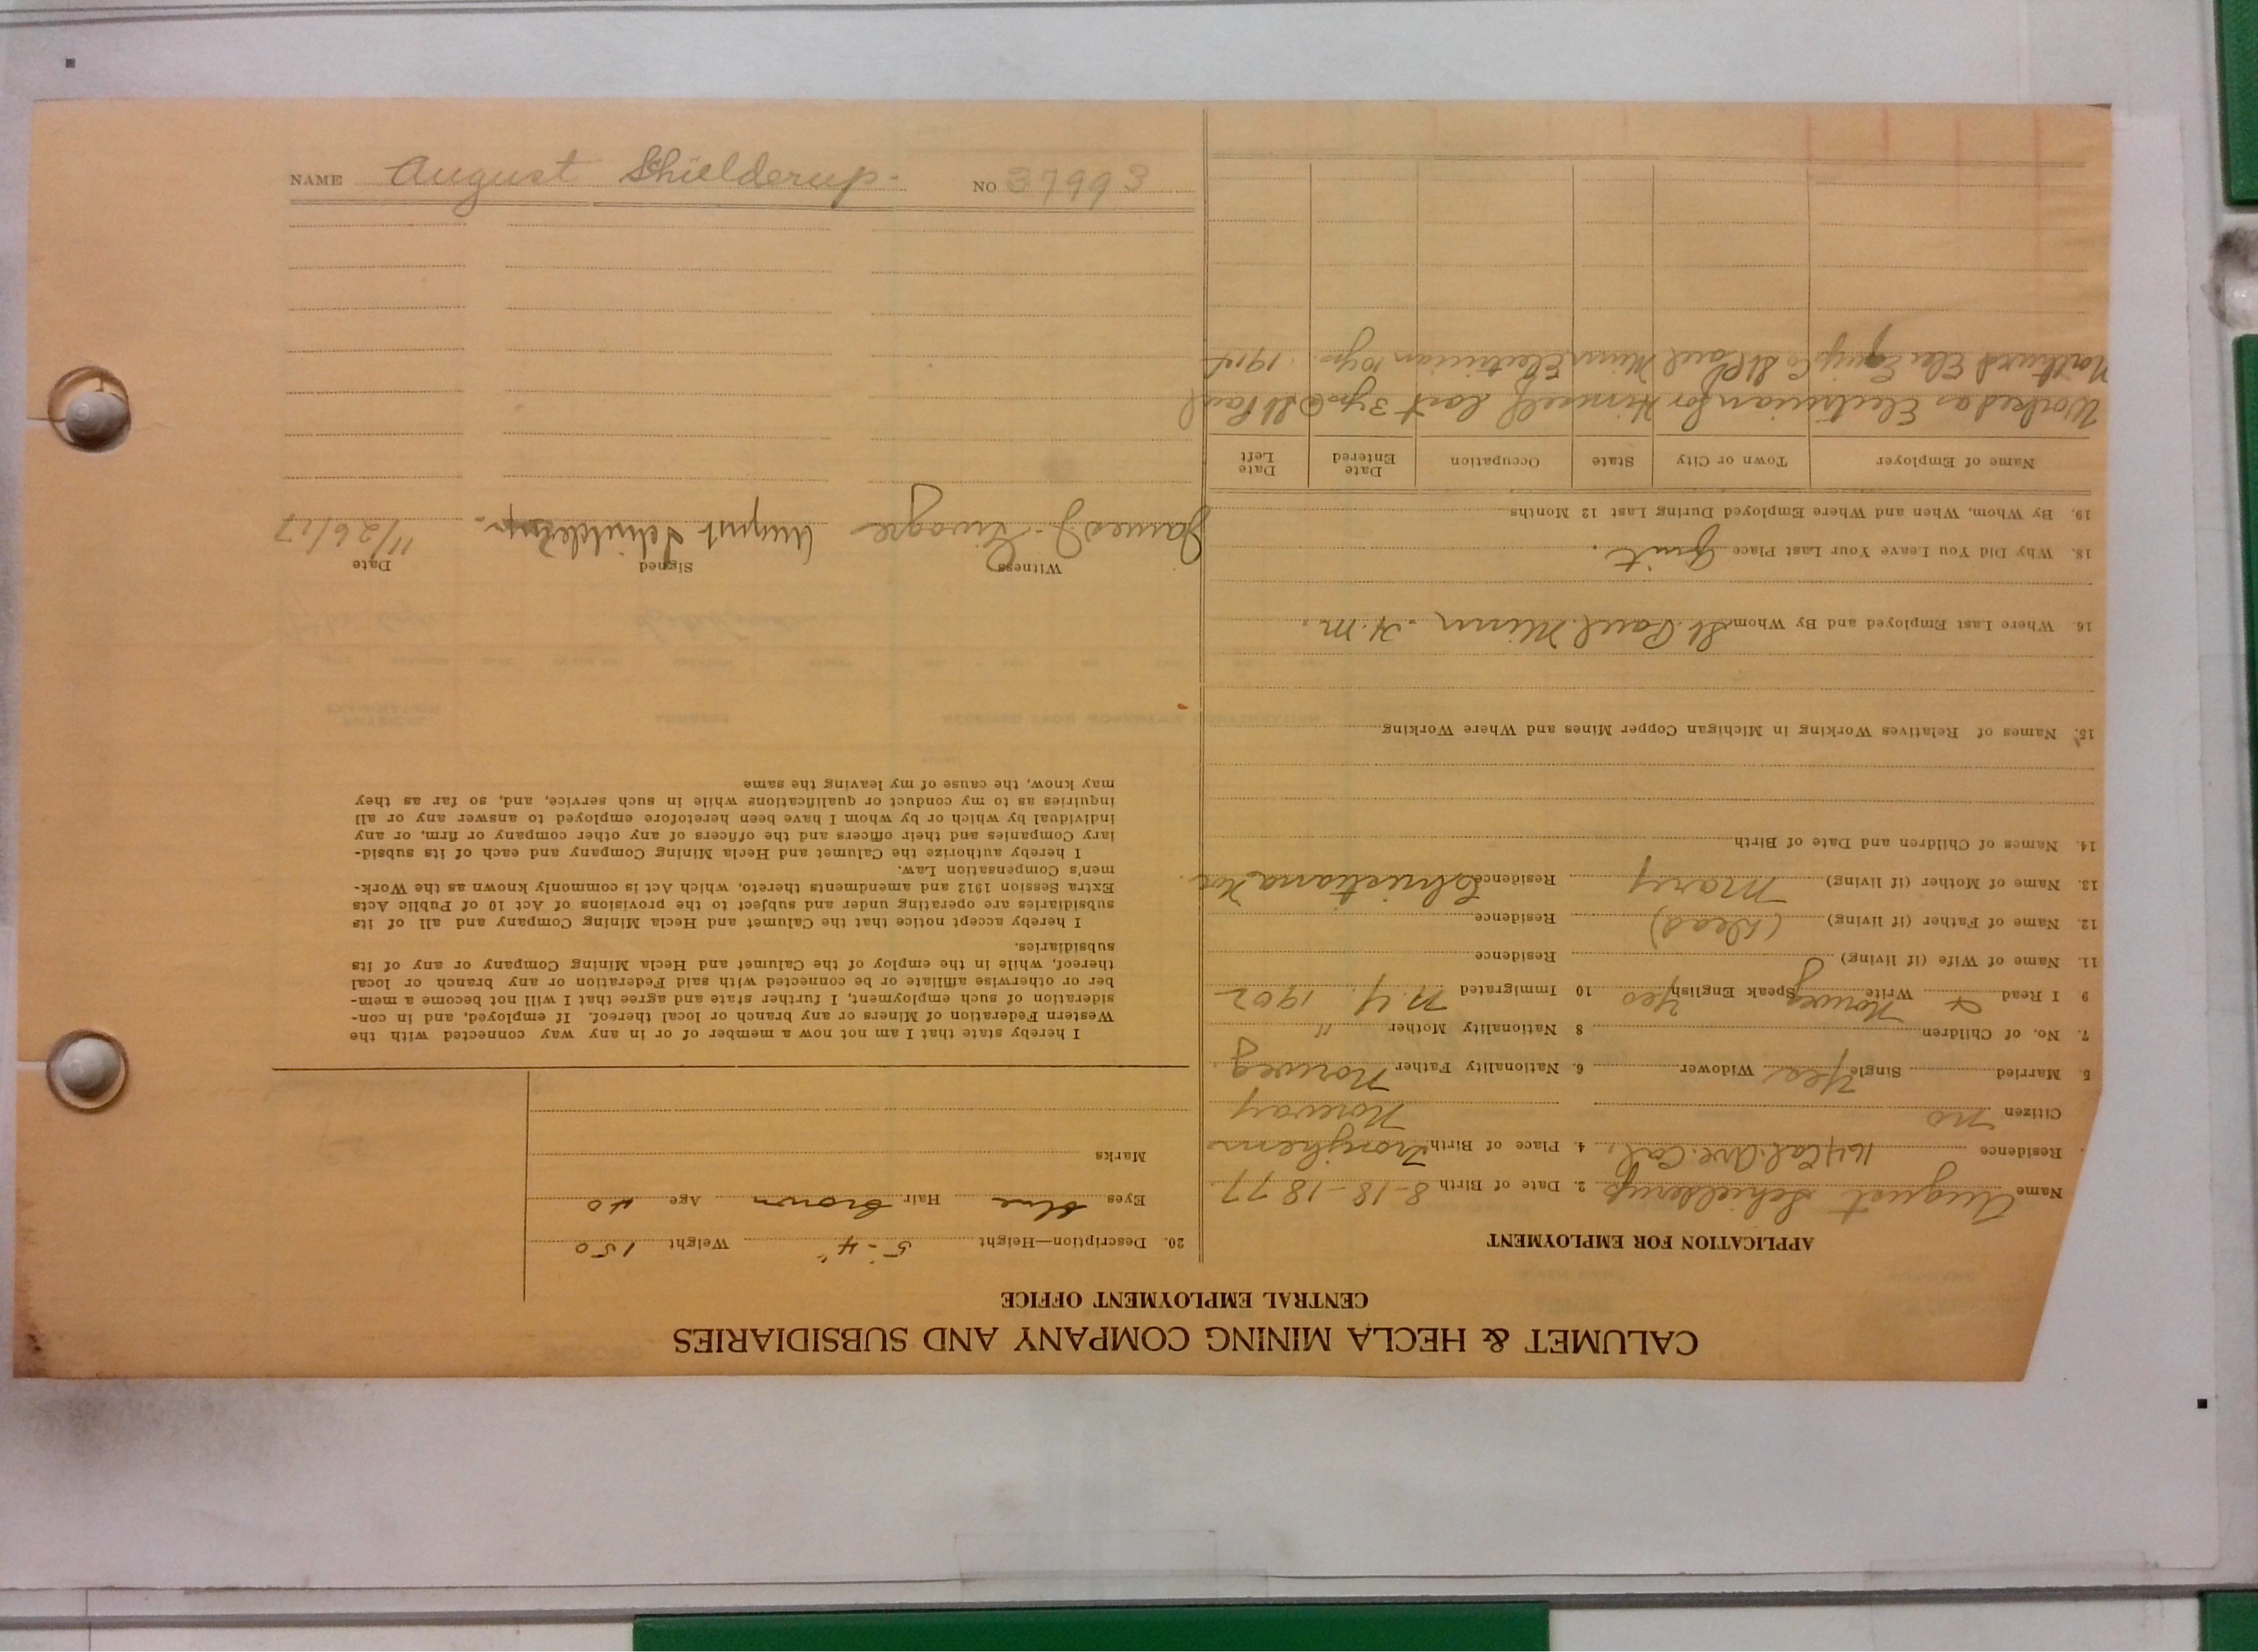 CALUMET & HECLA MINING COMPANY AND SUBSIDIARIES
CENTRAL EMPLOYMENT OFFICE
APPLICATION FOR EMPLOYMENT
Name August Schielderup 2. Date of Birth 8-18-1877
Residence 164 Cal. Ave. Cal. 4. Place of Birth Tronjhem
Citizen no Norway
5. Married Single Yes Widower 6. Nationality Father Norweg
7. No. of Children 8 Nationality Mother "
9 I Read & Write Norweg Speak English Yes 10 Immigrated N.Y. 1902
11. Name of Wife (if living) Residence
12. Name of Father (if living) (Dead) Residence
13. Name of Mother (if living) Mary Residence Christiana Nor.
14. Names of Children and Date of Birth
15. Names of Relatives Working in Michigan Copper Mines and Where Working
16. Where Last Employed and By Whom St. Paul Minn. H.M.
18. Why Did You Leave Your Last Place Quit.
19. By Whom, When and Where Employed During Last 12 Months
Name of Employer Town or City State Occupation Date Entered Date Left
Worked as Electrician for Himself last 3 yrs @ St Paul
Northwest Elec Equip Co St Paul Minn Electrician 10 yrs. 1914
20. Description—Height 5'-4" Weight 150
Eyes blue Hair brown Age 40
Marks
I hereby state that I am not now a member of or in any way connected with the
Western Federation of Miners or any branch or local thereof. If employed, and in con-
sideration of such employment, I further state and agree that I will not become a mem-
ber or otherwise affiliate or be connected with said Federation or any branch or local
thereof, while in the employ of the Calumet and Hecla Mining Company or any of its
subsidiaries.
I hereby accept notice that the Calumet and Hecla Mining Company and all of its
subsidiaries are operating under and subject to the provisions of Act 10 of Public Acts
Extra Session 1912 and amendments thereto, which Act is commonly known as the Work-
men's Compensation Law.
I hereby authorize the Calumet and Hecla Mining Company and each of its subsid-
iary Companies and their officers and the officers of any other company or firm, or any
individual by which or by whom I have been heretofore employed to answer any or all
inquiries as to my conduct or qualifications while in such service, and, so far as they
may know, the cause of my leaving the same
Witness Signed Date
James J. August Schielderup. 11/26/17
NAME August Shielderup. NO 37993